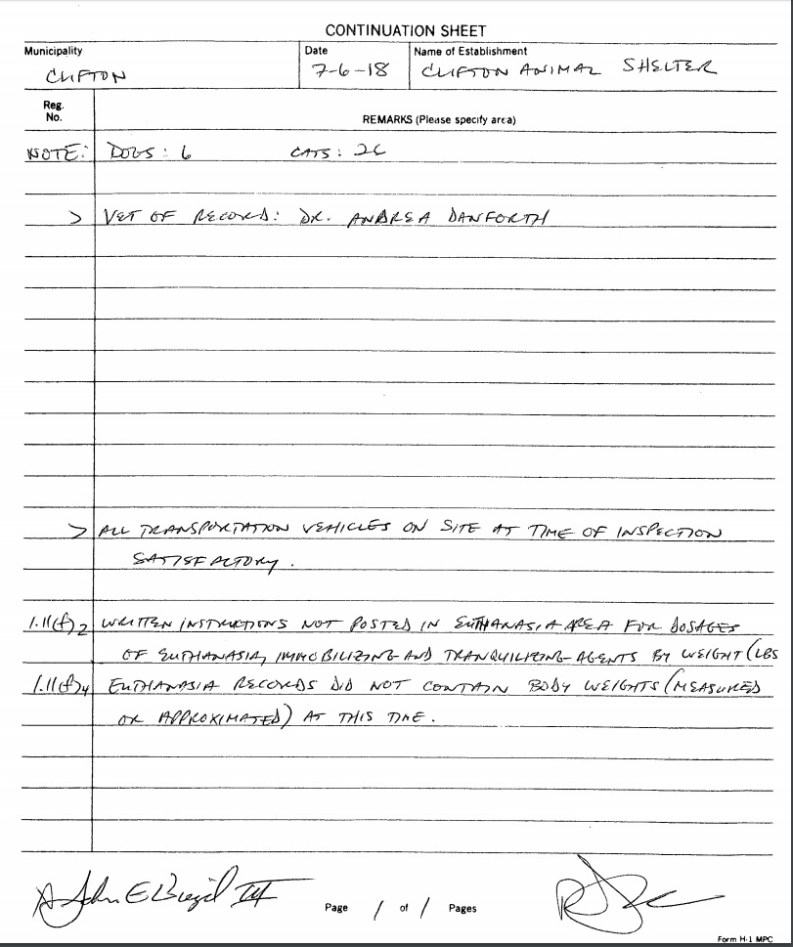 CONTINUATION SHEET
Municipality Date Name of Establishment
CLIFTON 7-6-18 CLIFTON ANIMAL SHELTER
Reg. No. REMARKS (Please specify area)
NOTE: DOGS: 6 CATS: 26
> VET OF RECORD: DR. ANDREA DANFORTH
> ALL TRANSPORTATION VEHICLES ON SITE AT TIME OF INSPECTION
SATISFACTORY.
1.11(f)2 WRITTEN INSTRUCTIONS NOT POSTED IN EUTHANASIA AREA FOR DOSAGES
OF EUTHANASIA, IMMOBILIZING AND TRANQUILIZING AGENTS BY WEIGHT (LBS
1.11(f)4 EUTHANASIA RECORDS DID NOT CONTAIN BODY WEIGHTS (MEASURED
OR APPROXIMATED) AT THIS TIME.
John E
Page 1 of 1 Pages
Form H-1 MPC